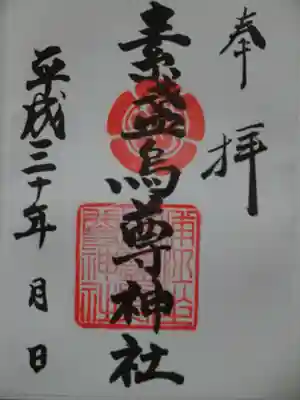 奉拝
素盞烏尊神社
平成三十年 月 日